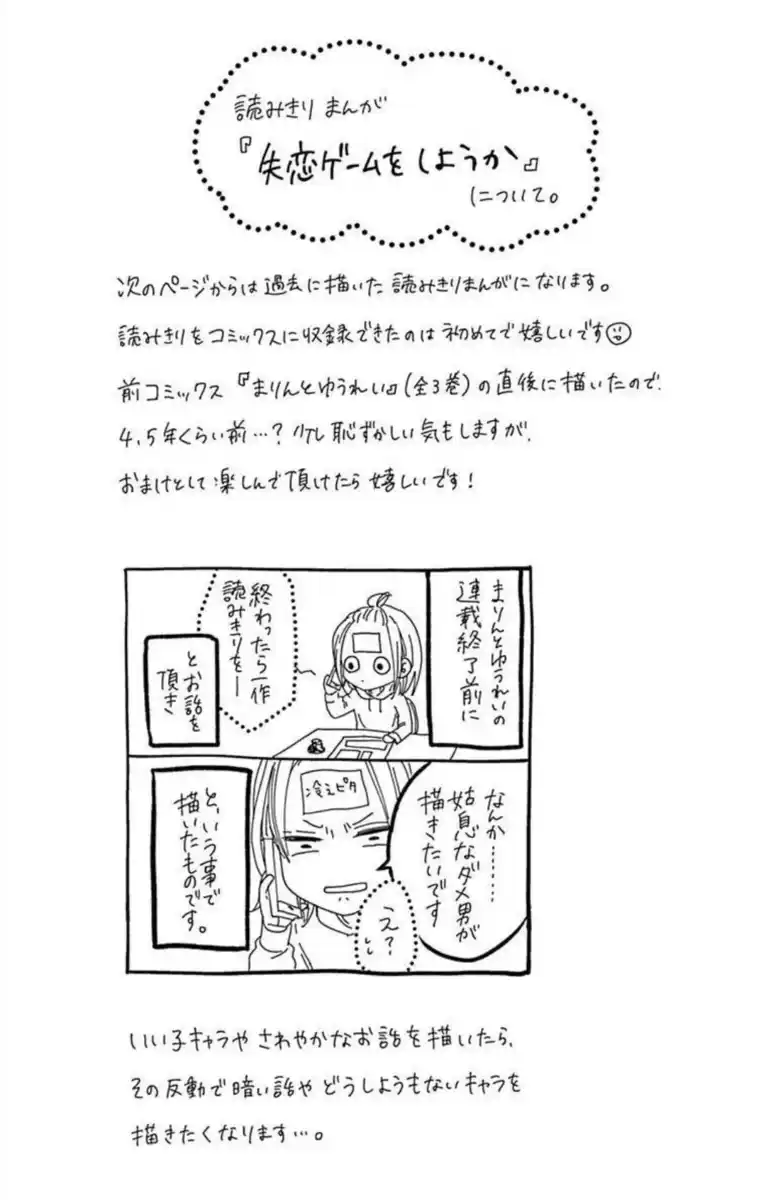 読みきりまんが
『失恋ゲームをしようか』
について。
次のページからは過去に描いた読みきりまんがになります。
読みきりをコミックスに収録できたのは初めてで嬉しいです
前コミックス『まりんとゆうれい』(全3巻)の直後に描いたので、
4、5年くらい前…?少し恥ずかしい気もしますが、
おまけとして楽しんで頂けたら嬉しいです!
まりんとゆうれいの
連載終了前に
終わったら一作
読みきりを――
とお話を
頂き
なんか………
姑息なダメ男が
描きたいです
冷えピタ
え?
と、いう事で
描いたものです。
いい子キャラやさわやかなお話を描いたら、
その反動で暗い話やどうしようもないキャラを
描きたくなります…。